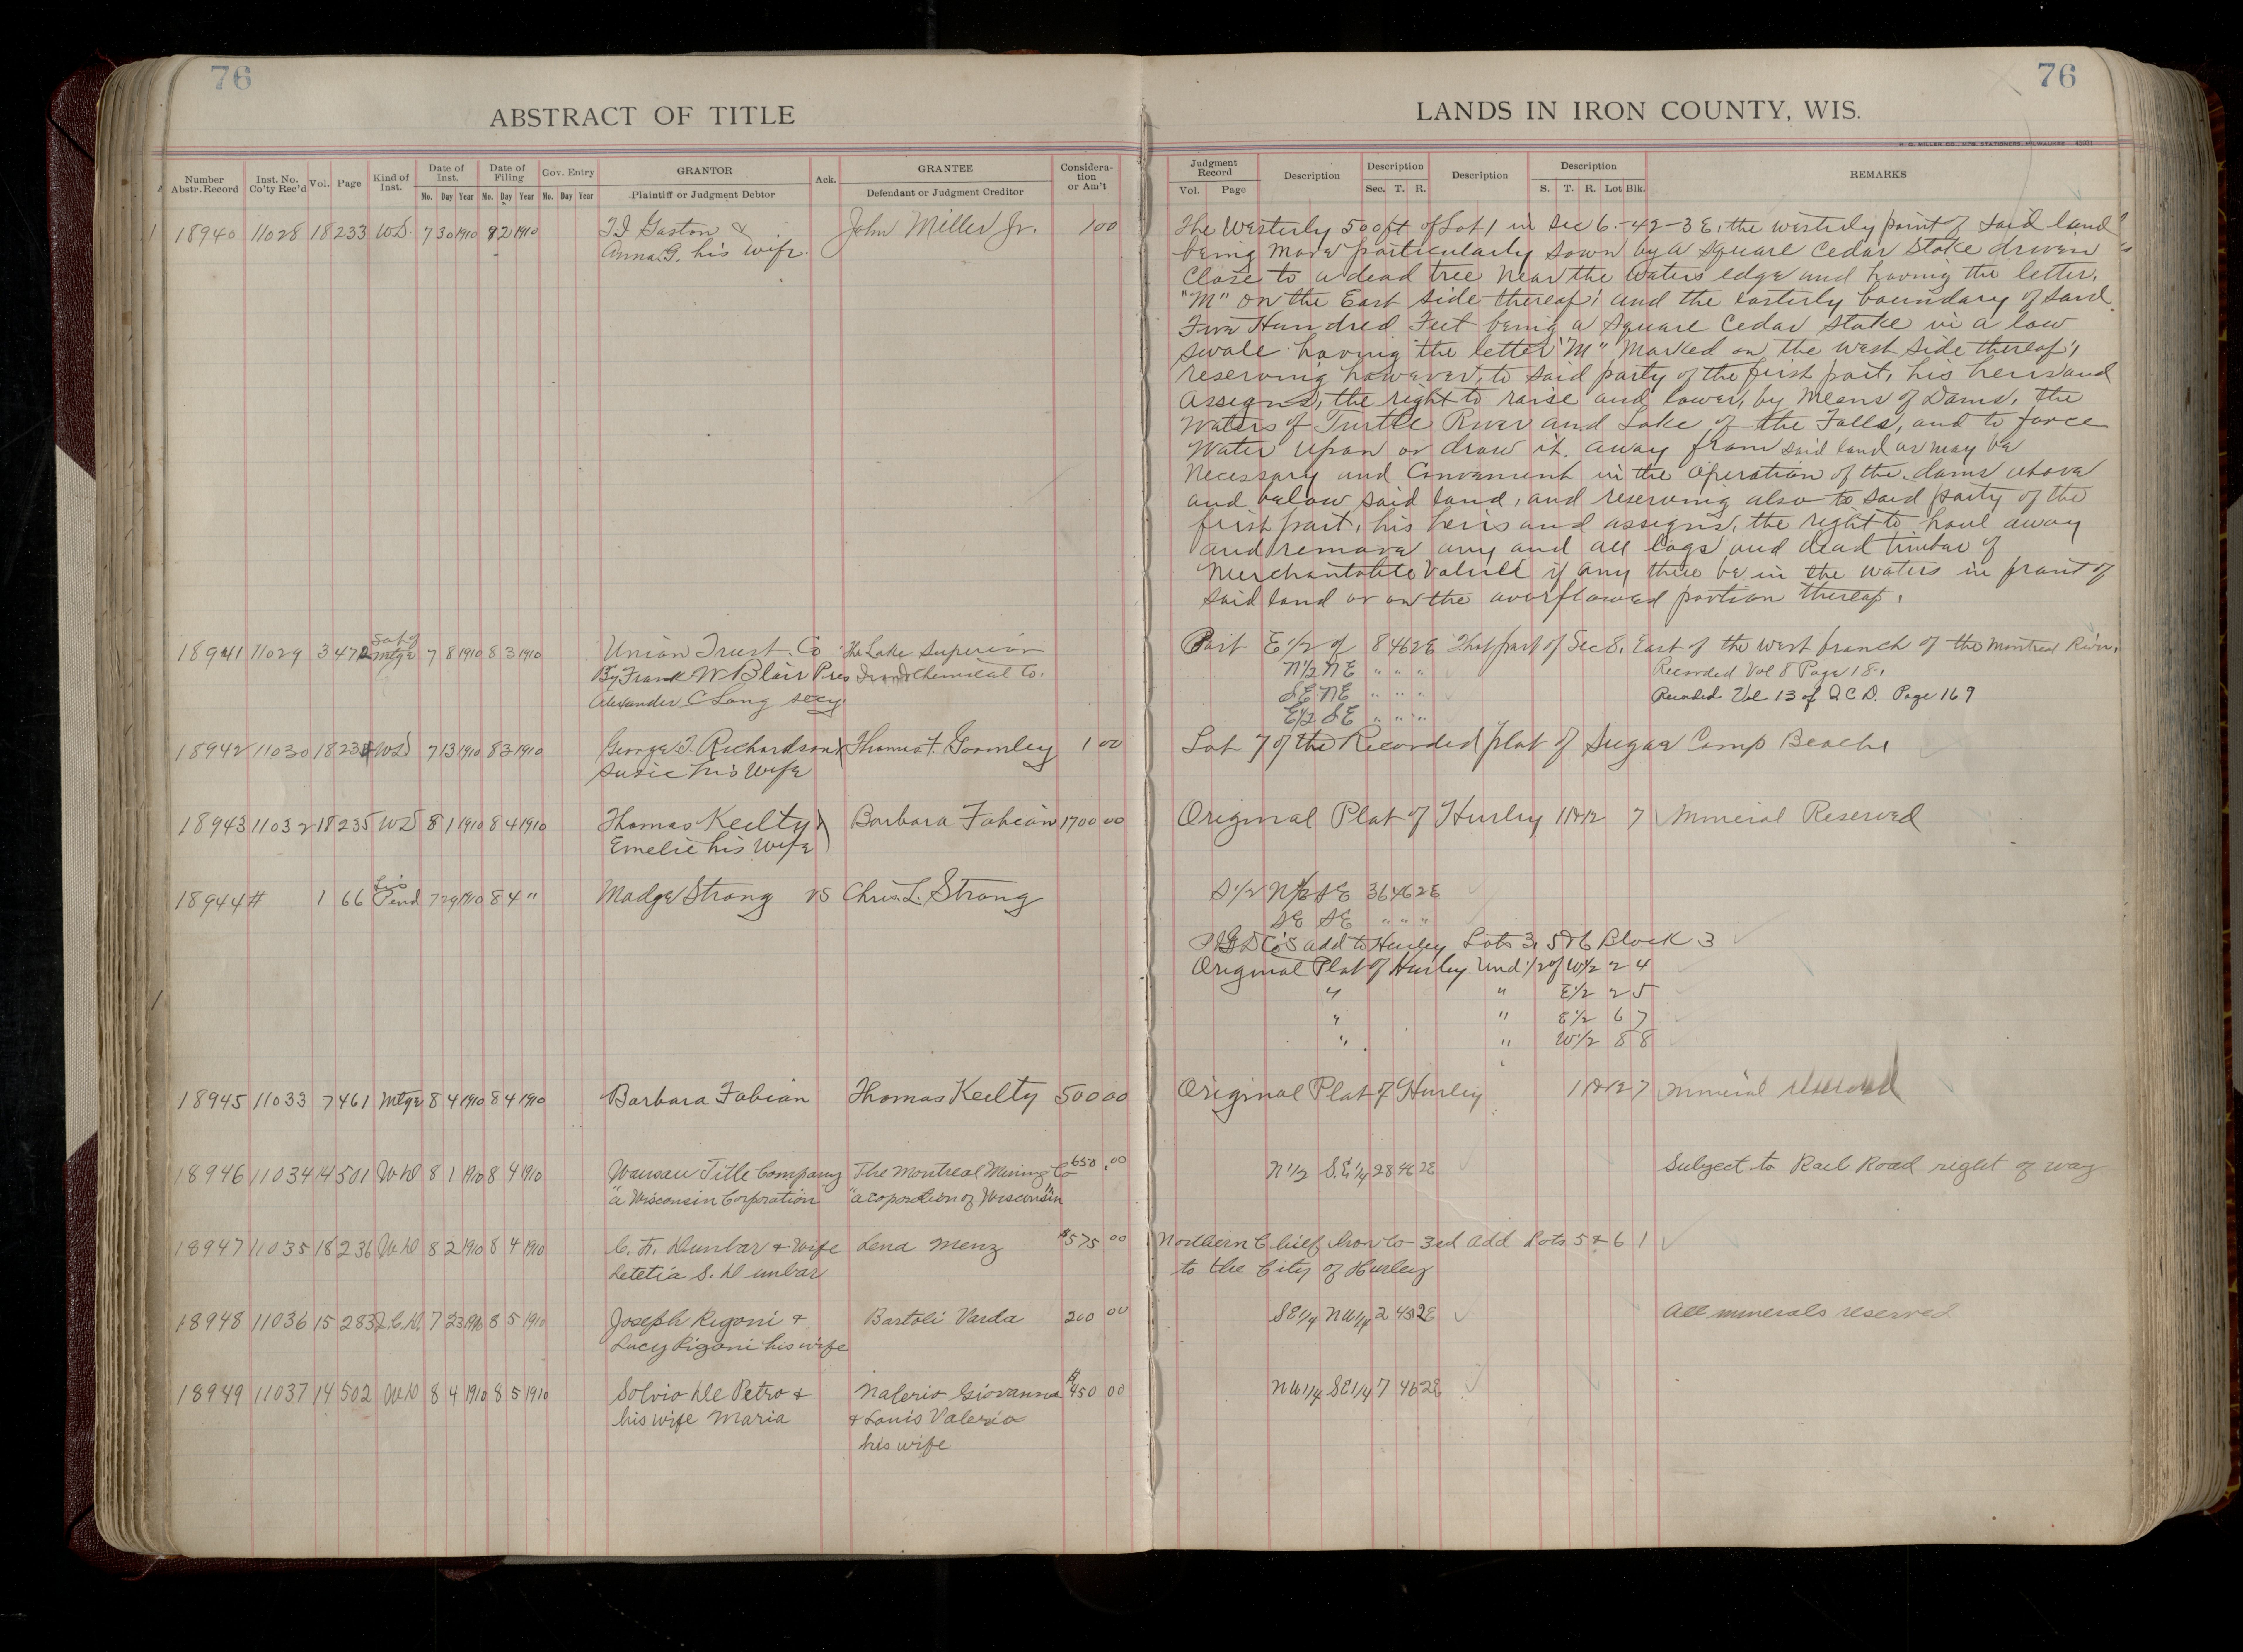 76
76
ABSTRACT OF TITLE
LANDS IN IRON COUNTY, WIS.
H. G. MILLER CO., MFG. STATIONERS, MILWAUKEE
Number Abstr. Record Inst. No. Co'ty Rec'd Vol. Page Kind of Inst. Date of Inst. Mo. Day Year Date of Filing Mo. Day Year Gov. Entry Mo. Day Year GRANTOR Plaintiff or Judgment Debtor Ack. GRANTEE Defendant or Judgment Creditor Considera-tion or Am't
Judgment Record Vol. Page Description Description Sec. T. R. Description Description S. T. R. Lot Blk. REMARKS
18940 11028 18 233 W.D. 7 30 1910 8 2 1910 Gaston & John Miller Jr. 1 00
Anna G. his wife.
The Westerly 500 ft of Lot 1 in Sec 6.-42-3E, the westerly point of said land
being more particularly sown by a square Cedar Stake driven
Close to a dead tree near the waters edge and having the letter,
"M" on the East side thereof; and the easterly boundary of said
Five Hundred Feet being a square Cedar stake in a low
swale having the letter "M" marked on the west side thereof;
reserving however, to said party of the first part, his heirs and
assigns, the right to raise and lower, by means of Dams, the
waters of Turtle River and Lake of the Falls, and to force
water upon or draw it away from said land as may be
necessary and Convenient in the operation of the dams above
and below said land, and reserving also to said party of the
first part, his heirs and assigns, the right to haul away
and remove any and all logs and dead timber of
Merchantable value if any there be in the waters in front of
said land or on the overflowed portion thereof.
18941 11029 3 472 Sat of Mtge 7 8 1910 8 3 1910 Union Trust. Co The Lake Superior Part E 1/2 of 8 46 2E That part of Sec 8, East of the west branch of the Montreal River.
By Frank W Blair Pres Iron & Chemical Co. N 1/2 NE " " " Recorded Vol 8 Page 18.
Alexander C Long secy. SE NE " " " Recorded Vol. 13 of Q C D. Page 169
E 1/2 SE " " "
18942 11030 18 234 WD 7 13 1910 8 3 1910 George T. Richardson Thomas F. Gormley 1 00 Lot 7 of the Recorded plat of Sugar Camp Beach
Susie his Wife
18943 11032 18 235 WD 8 1 1910 8 4 1910 Thomas Keelty Barbara Fabian 1700 00 Original Plat of Hurley 11&12 7 Mineral Reserved
Emelie his Wife
18944 # 1 66 Lis Pend 7 29 1910 8 4 " Madge Strong vs Chris. L. Strong S 1/2 N 1/2 SE 36 46 2E
SE SE " " "
Co's add to Hurley Lots 3, 5 & 6 Block 3
Original Plat of Hurley Und 1/2 of W 1/2 2 4
" " E 1/2 2 5
" " E 1/2 6 7
" " W 1/2 8 8
18945 11033 7 461 Mtge 8 4 1910 8 4 1910 Barbara Fabian Thomas Keelty 500 00 Original Plat of Hurley 11&12 7 mineral reserved
18946 11034 14 501 WD 8 1 1910 8 4 1910 Wausau Title Company The Montreal Mining Co 650.00 N 1/2 S.E 1/4 28 46 2E Subject to Rail Road right of way
"a Wisconsin Corporation "a coporation of Wisconsin"
18947 11035 18 236 WD 8 2 1910 8 4 1910 C. F. Dunbar & Wife Lena Menz $575 00 Northern Chief Iron Co 3ed Add Lots 5 & 6 1
Letetia S. Dunbar to the City of Hurley
18948 11036 15 283 Q.C.D. 7 23 1910 8 5 1910 Joseph Rigoni & Bartoli Varda 200 00 SE 1/4 NW 1/4 2 45 2E All minerals reserved
Lucy Rigoni his wife
18949 11037 14 502 WD 8 4 1910 8 5 1910 Solvio De Petro & Valerio Giovanna $450 00 NW 1/4 SE 1/4 7 46 2E
his wife Maria & Louis Valerio
his wife